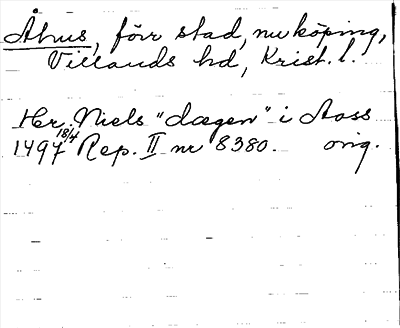 Åhus, förr stad, nu köping,
Villands hd, Krist. l.
Hr. Niels "dægen" i Aoss
1497 18/4 Rep. II nr 8380. orig.